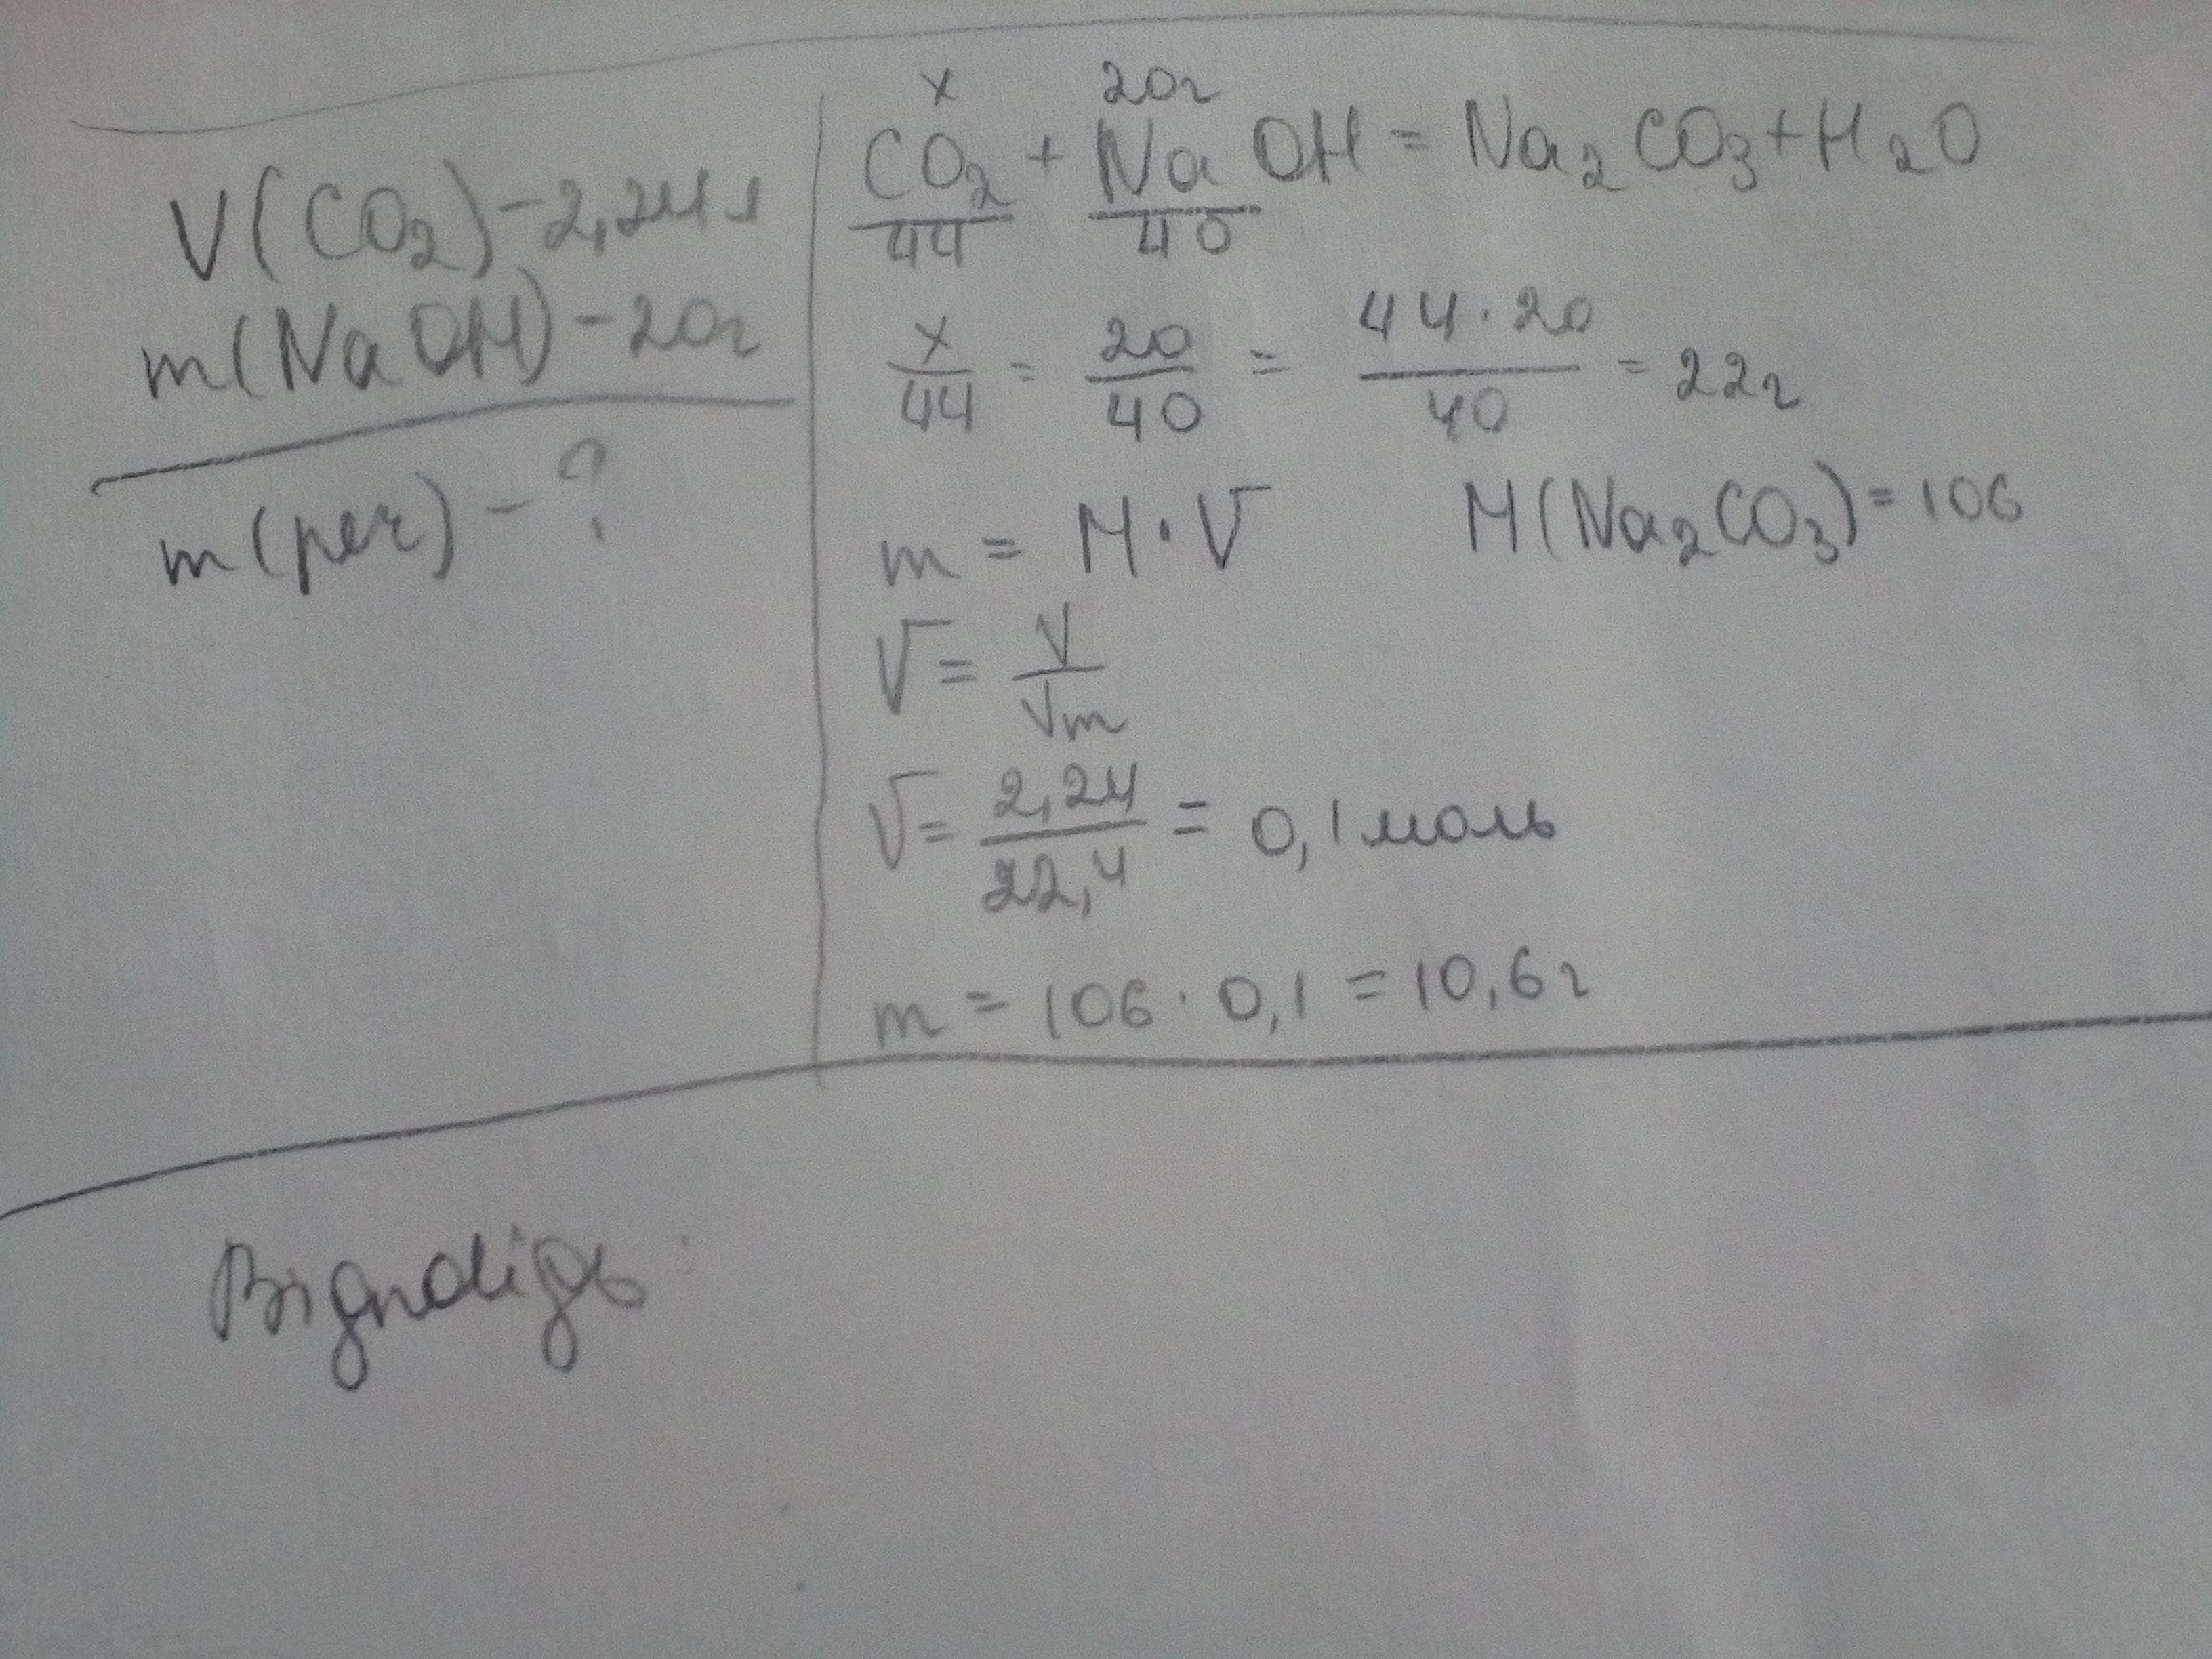 V(CO₂) - 2,24 л
m(NaOH) - 20г
m(реч) - ?
x 20г
CO₂ + NaOH = Na₂CO₃ + H₂O
44 40
x/44 = 20/40 = 44·20/40 = 22г
m = M·ν M(Na₂CO₃) = 106
ν = V/Vm
ν = 2,24/22,4 = 0,1 моль
m = 106·0,1 = 10,6г
Відповідь: